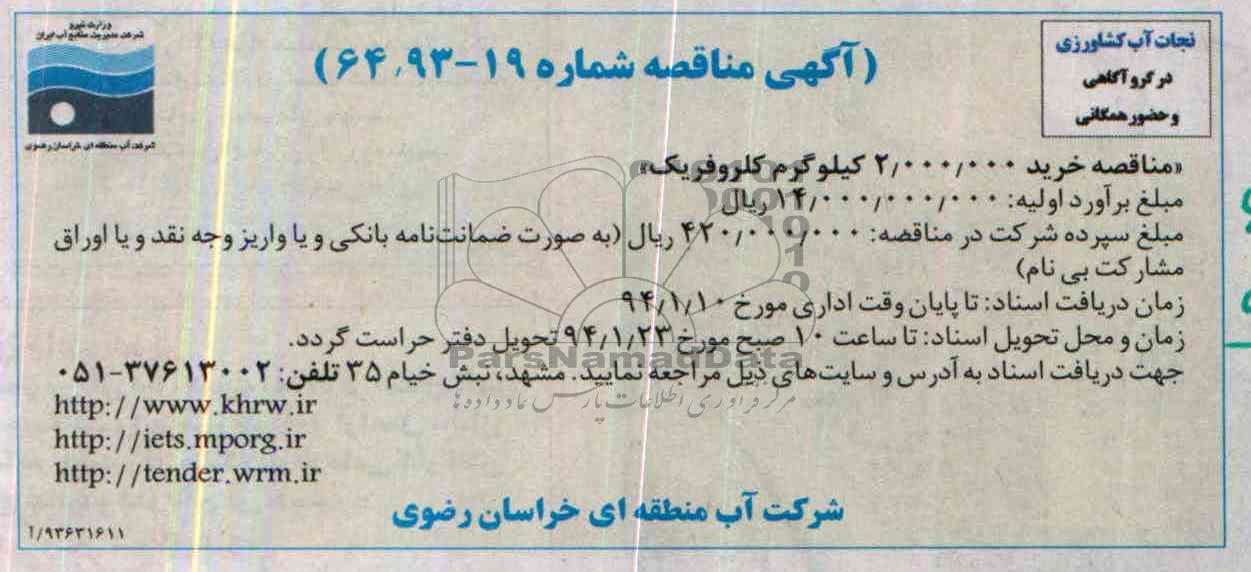 نجات آب کشاورزی
در گرو آگاهی
و حضور همگانی
(آگهی مناقصه شماره ۱۹-۶۴،۹۳)
وزارت نیرو
شرکت مدیریت منابع آب ایران
شرکت آب منطقه ای خراسان رضوی
«مناقصه خرید ۲/۰۰۰/۰۰۰ کیلوگرم کلروفریک»
مبلغ برآورد اولیه: ۱۴/۰۰۰/۰۰۰/۰۰۰ ریال
مبلغ سپرده شرکت در مناقصه: ۴۲۰/۰۰۰/۰۰۰ ریال (به صورت ضمانت‌نامه بانکی و یا واریز وجه نقد و یا اوراق
مشارکت بی نام)
زمان دریافت اسناد: تا پایان وقت اداری مورخ ۹۴/۱/۱۰
زمان و محل تحویل اسناد: تا ساعت ۱۰ صبح مورخ ۹۴/۱/۲۳ تحویل دفتر حراست گردد.
ParsNamadData
جهت دریافت اسناد به آدرس و سایت‌های ذیل مراجعه نمایید. مشهد، نبش خیام ۳۵ تلفن: ۳۷۶۱۳۰۰۲-۰۵۱
مرکز فرآوری اطلاعات پارس نماد داده ها
http://www.khrw.ir
http://iets.mporg.ir
http://tender.wrm.ir
شرکت آب منطقه ای خراسان رضوی
۹۳۶۳۱۶۱۱/آ